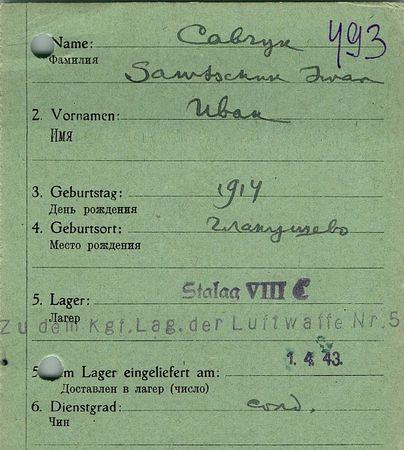 Name: Савчук 493
Фамилия
Sawtschuk Iwan
2. Vornamen: Иван
Имя
3. Geburtstag: 1914
День рождения
4. Geburtsort:
Место рождения
5. Lager: Stalag VIII C
Лагер
Zu dem Kgf. Lag. der Luftwaffe Nr. 5
5. Im Lager eingeliefert am: 1. 4. 43.
Доставлен в лагер (число)
6. Dienstgrad: солд.
Чин